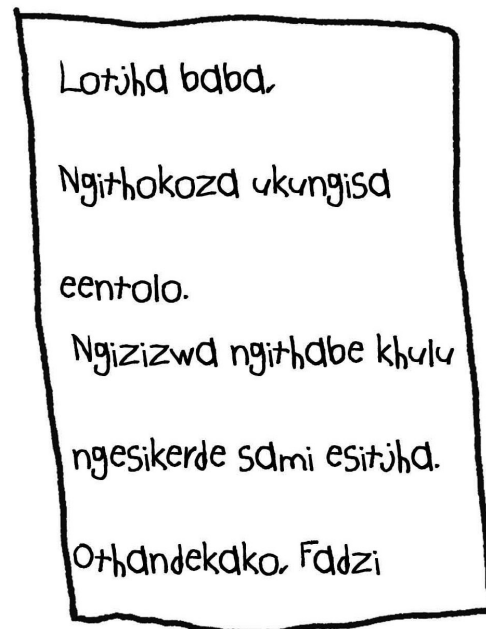 Lotjha baba,
Ngithokoza ukungisa
eentolo.
Ngizizwa ngithabe khulu
ngesikerde sami esitjha.
Othandekako, Fadzi